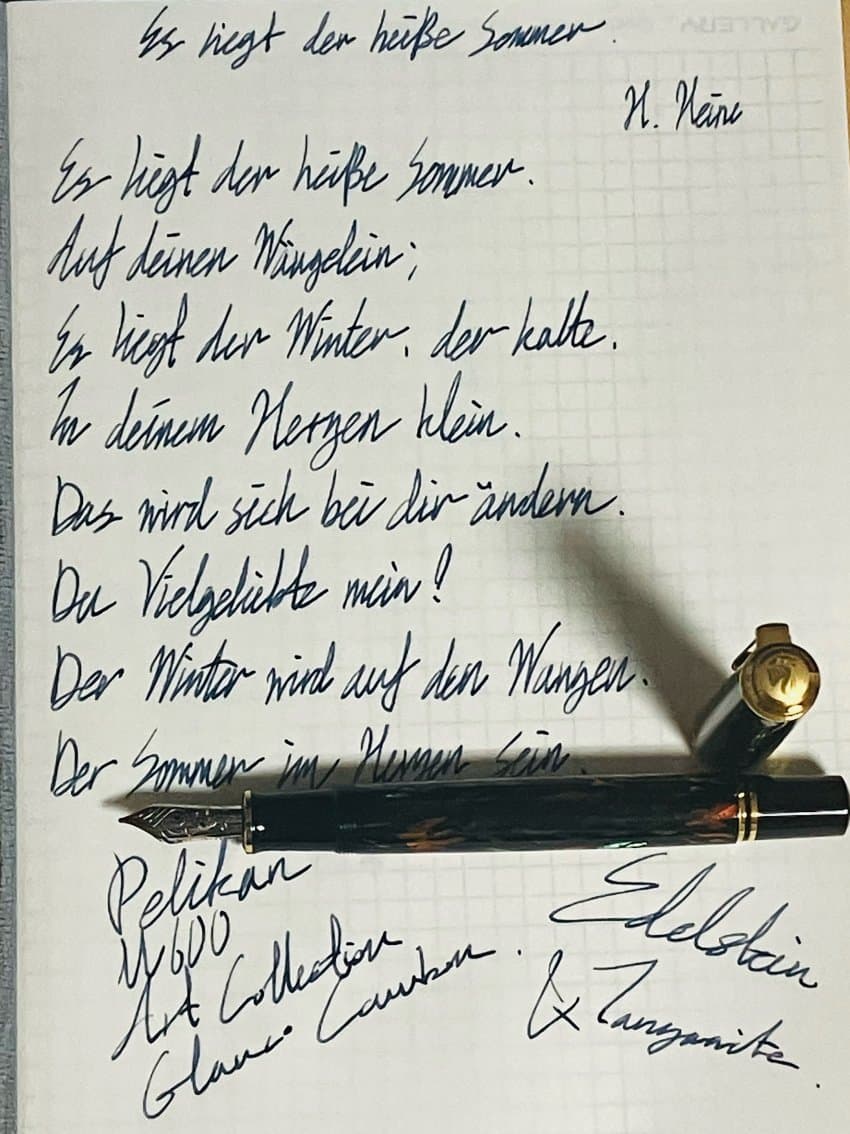 Es liegt der heiße Sommer.
H. Heine
Es liegt der heiße Sommer.
Auf deinen Wängelein;
Es liegt der Winter, der kalte.
In deinem Herzen klein.
Das wird sich bei dir ändern.
Du Vielgeliebte mein!
Der Winter wird auf den Wangen.
Der Sommer im Herzen sein.
Pelikan
M600
Art Collection
Glauco Cambon.
Edelstein
& Tanzanite.